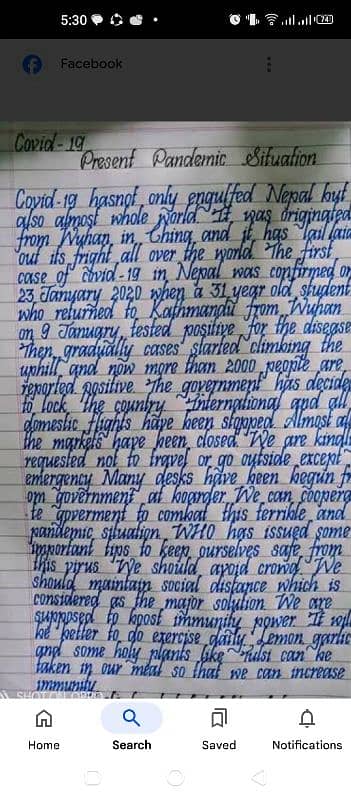 5:30
74
Facebook
Covid-19
Present Pandemic Situation
Covid-19 hasnot only engulfed Nepal but
also almost whole world It was originated
from Wuhan in China and it has
out its fright all over the world The first
case of covid-19 in Nepal was confirmed on
23 January 2020 when a 31 year old student
who returned to Kathmandu from Wuhan
on 9 January tested positive for the disease
Then gradually cases started climbing the
uphill and now more than 2000 people are
reported positive The government has decide
to lock the country International and all
domestic flights have been stopped Almost al
the markets have been closed We are kindl
requested not to travel or go outside except
emergency Many desks have been begun fr
om government at boarder We can coopera
te goverment to combat this terrible and
pandamic situation WHO has issued some
important tips to keep ourselves safe from
this virus We should avoid crowd We
should maintain social distance which is
considered as the major solution We are
supposed to boost immunity power It will
be better to do exercise daily Lemon garlic
and some holy plants like Tulsi can be
taken in our meal so that we can increase
immunity
SHOT ON OPPO
Home
Search
Saved
Notifications